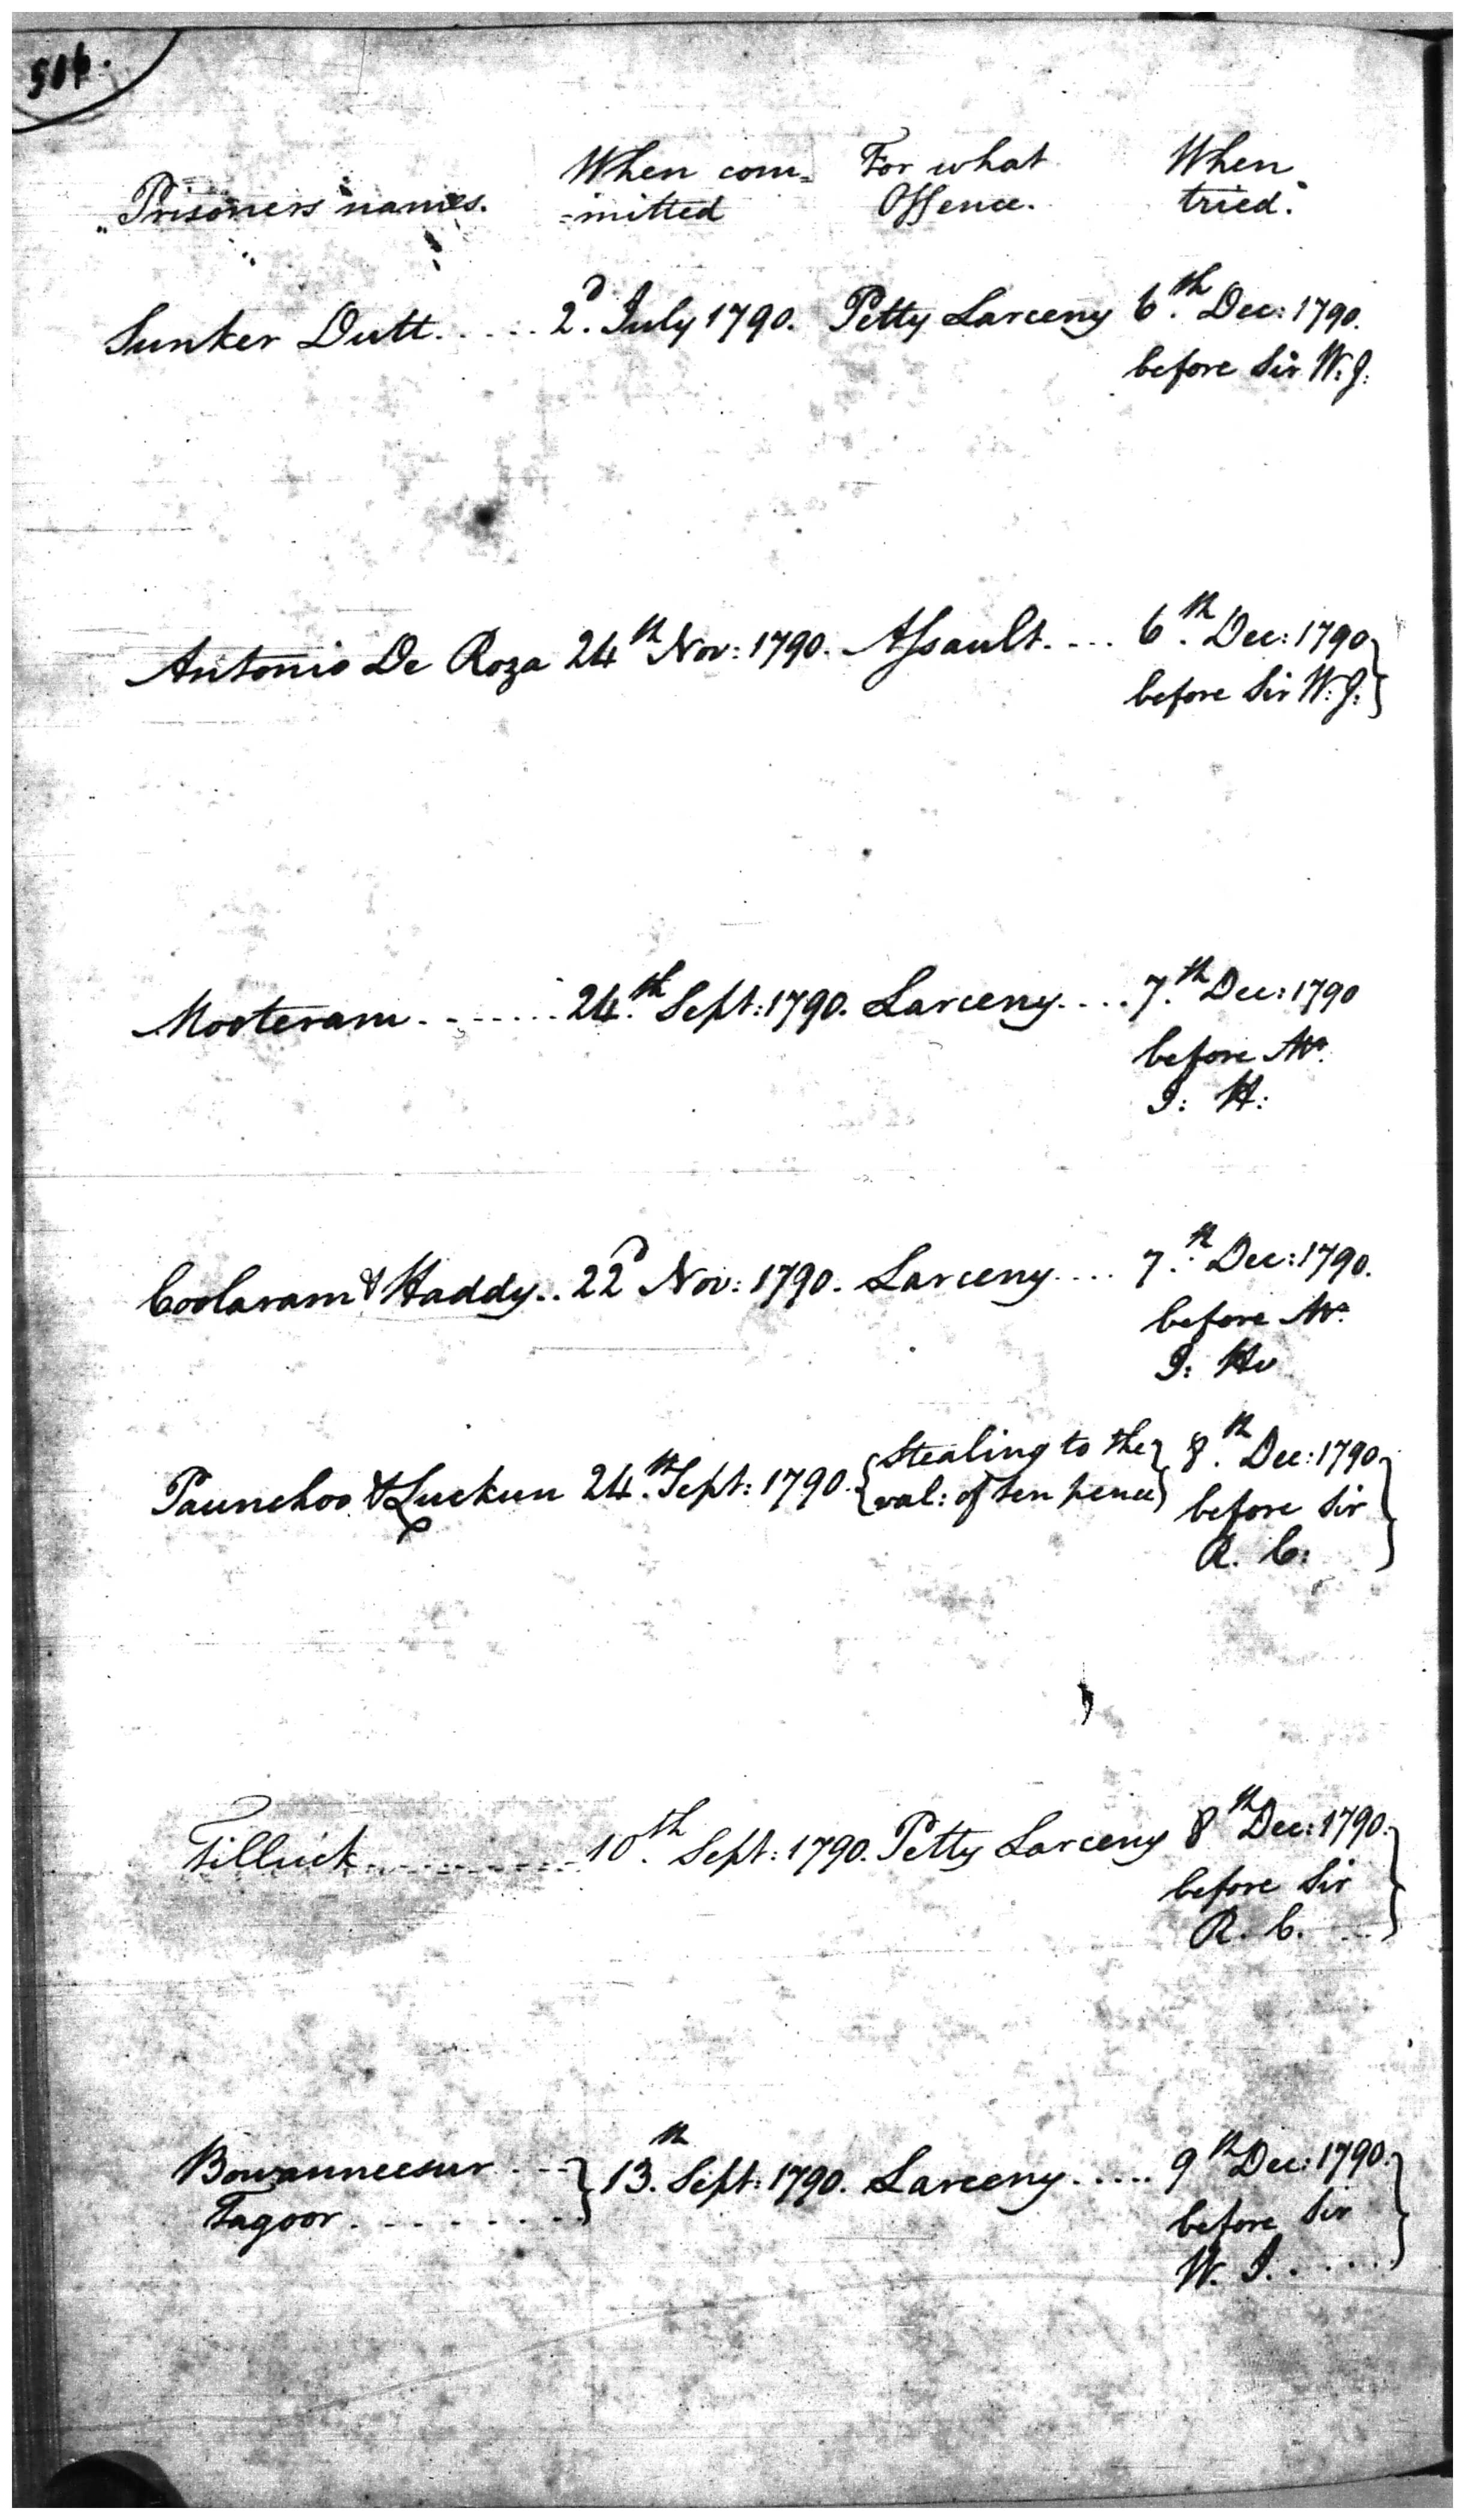 516.
Prisoners names. When com= For what When
=mitted Offence. tried.
Sunker Dutt..... 2.d July 1790. Petty Larceny 6.th Dec: 1790.
before Sir W: J:
Antonio De Roza 24th Nov: 1790. Assault.... 6.th Dec: 1790
before Sir W: J:
Mooteram........ 24.th Sept: 1790. Larceny.... 7.th Dec: 1790
before Mr.
J: H:
Coolaram & Haddy.. 22d Nov: 1790. Larceny.... 7.th Dec: 1790.
before Mr.
J: H:
Paunchoo & Luckun 24.th Sept: 1790. {Stealing to the} 8.th Dec: 1790
{val: of ten pence} before Sir
R. C:
Tilluck............ 10.th Sept: 1790. Petty Larceny 8th Dec: 1790.
before Sir
R. C. ...
Bowanneesur ... } 13.th Sept: 1790. Larceny..... 9th Dec: 1790.
Tagoor......... before Sir
W. J......